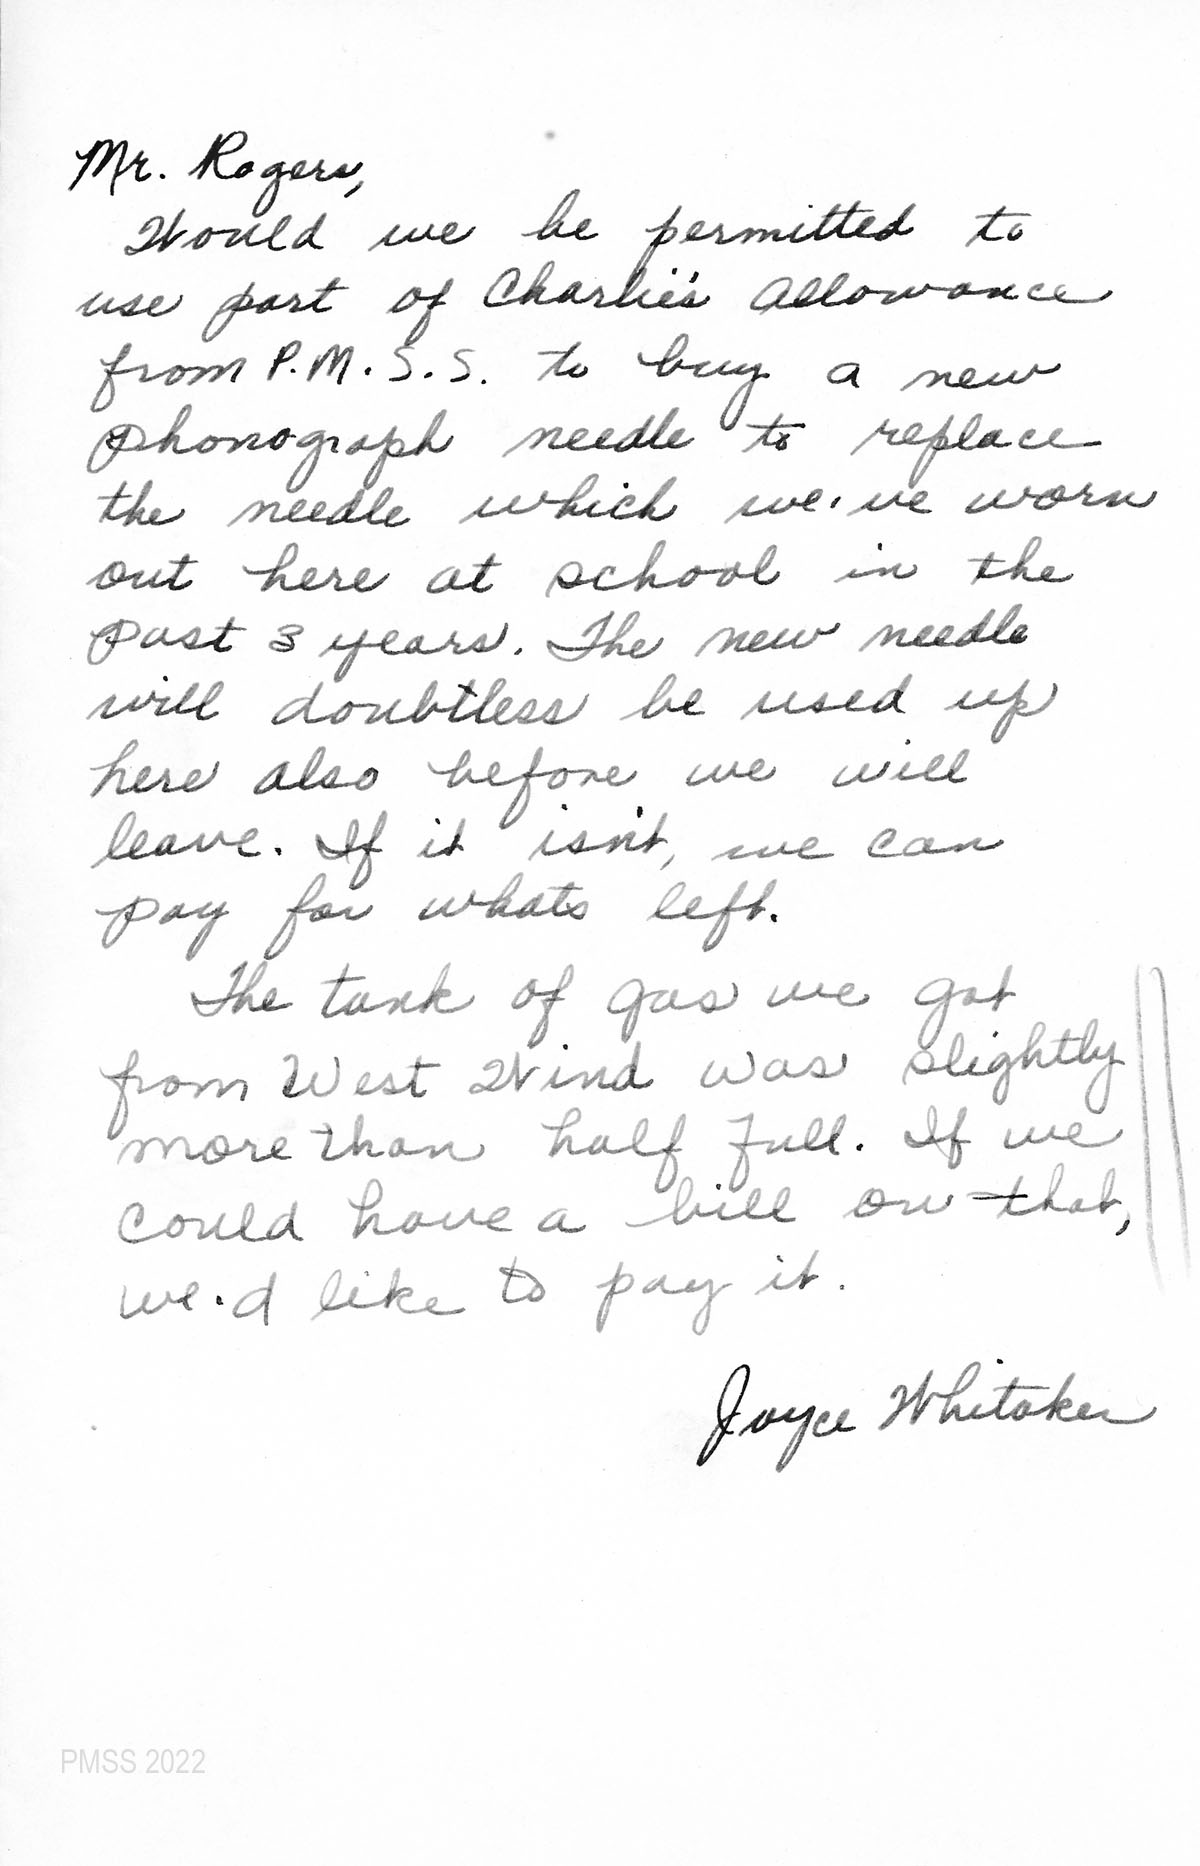 Mr. Rogers,
Would we be permitted to
use part of Charlie's allowance
from P.M.S.S. to buy a new
phonograph needle to replace
the needle which we've worn
out here at school in the
past 3 years. The new needle
will doubtless be used up
here also before we will
leave. If it isn't, we can
pay for whats left.
The tank of gas we got
from West Wind was slightly
more than half full. If we
could have a bill on that,
we'd like to pay it.
Joyce Whitaker
PMSS 2022